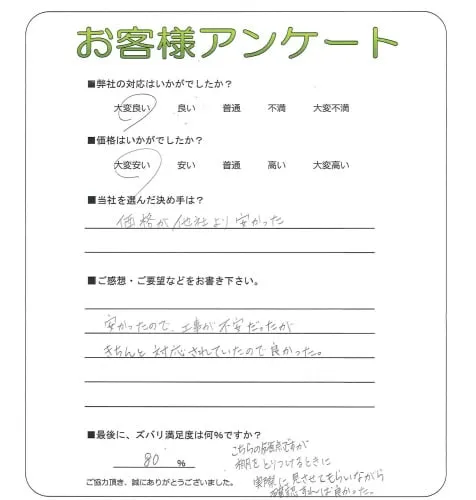 お客様アンケート
■弊社の対応はいかがでしたか？
大変良い 良い 普通 不満 大変不満
■価格はいかがでしたか？
大変安い 安い 普通 高い 大変高い
■当社を選んだ決め手は？
価格が他社より安かった
■ご感想・ご要望などをお書き下さい。
安かったので、工事が不安だったが
きちんと対応されていたので良かった。
■最後に、ズバリ満足度は何%ですか？
80 %
こちらの ですが
をとりつけるときに
実際に見させてもらいながら
確認すれば良かった。
ご協力頂き、誠にありがとうございました。